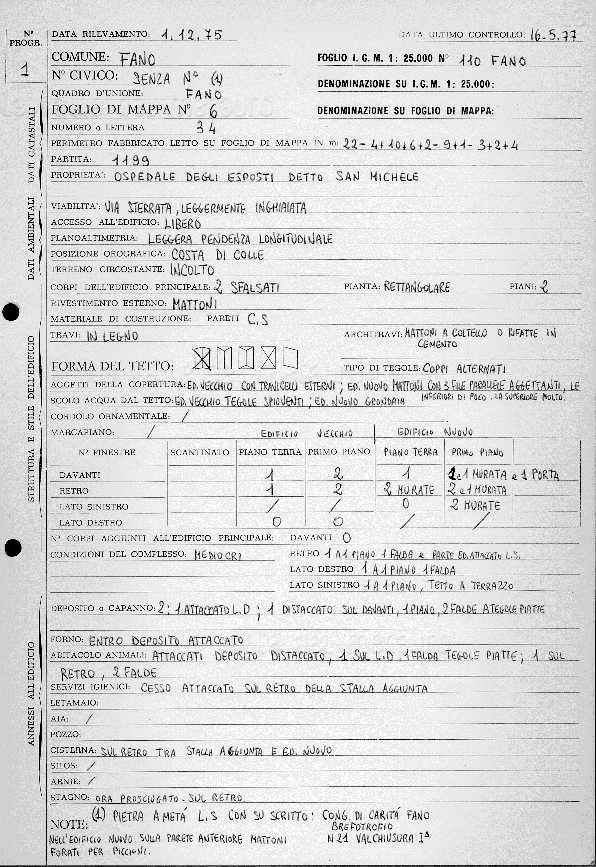 N° PROGR.
1
DATA RILEVAMENTO: 1.12.75 DATA ULTIMO CONTROLLO: 16.5.77
COMUNE: FANO FOGLIO I. G. M. 1: 25.000 N° 110 FANO
N° CIVICO: SENZA N° (1) DENOMINAZIONE SU I. G. M. 1: 25.000:
QUADRO D'UNIONE: FANO
FOGLIO DI MAPPA N° 6 DENOMINAZIONE SU FOGLIO DI MAPPA:
NUMERO o LETTERA 34
PERIMETRO FABBRICATO LETTO SU FOGLIO DI MAPPA IN m: 22-4+10+6+2-9+1-3+2+4
PARTITA: 1199
PROPRIETA': OSPEDALE DEGLI ESPOSTI DETTO SAN MICHELE
DATI CATASTALI
VIABILITA': VIA STERRATA, LEGGERMENTE INGHIAIATA
ACCESSO ALL'EDIFICIO: LIBERO
PLANOALTIMETRIA: LEGGERA PENDENZA LONGITUDINALE
POSIZIONE OROGRAFICA: COSTA DI COLLE
TERRENO CIRCOSTANTE: INCOLTO
DATI AMBIENTALI
CORPI DELL'EDIFICIO PRINCIPALE: 2 SFALSATI PIANTA: RETTANGOLARE PIANI: 2
RIVESTIMENTO ESTERNO: MATTONI
MATERIALE DI COSTRUZIONE: PARETI C.S
TRAVI: IN LEGNO ARCHITRAVI: MATTONI A COLTELLO O RIFATTE IN CEMENTO
FORMA DEL TETTO: TIPO DI TEGOLE: COPPI ALTERNATI
AGGETTI DELLA COPERTURA: ED. VECCHIO CON TRAVICELLI ESTERNI; ED. NUOVO MATTONI CON 3 FILE PARALLELE AGGETTANTI, LE
INFERIORI DI POCO. LA SUPERIORE MOLTO.
SCOLO ACQUA DAL TETTO: ED. VECCHIO TEGOLE SPIOVENTI; ED. NUOVO GRONDAIA
CORDOLO ORNAMENTALE: /
MARCAPIANO: / EDIFICIO VECCHIO EDIFICIO NUOVO
N° FINESTRE SCANTINATO PIANO TERRA PRIMO PIANO PIANO TERRA PRIMO PIANO
DAVANTI 1 2 1 2 e 1 MURATA e 1 PORTA
RETRO 1 2 2 MURATE 2 e 1 MURATA
LATO SINISTRO / / 0 2 MURATE
LATO DESTRO 0 0 / /
STRUTTURA E STILE DELL'EDIFICIO
N° CORPI AGGIUNTI ALL'EDIFICIO PRINCIPALE: DAVANTI 0
CONDIZIONI DEL COMPLESSO: MEDIOCRI RETRO 1 A 1 PIANO 1 FALDA e PARTE ED. ATTACCATO L.S.
LATO DESTRO 1 A 1 PIANO 1 FALDA
LATO SINISTRO 1 A 1 PIANO, TETTO A TERRAZZO
DEPOSITO o CAPANNO: 2; 1 ATTACCATO L.D; 1 DISTACCATO SUL DAVANTI, 1 PIANO, 2 FALDE A TEGOLE PIATTE
FORNO: ENTRO DEPOSITO ATTACCATO
ABITACOLO ANIMALI: ATTACCATI DEPOSITO DISTACCATO, 1 SUL L.D. 1 FALDA TEGOLE PIATTE; 1 SUL
RETRO, 2 FALDE
SERVIZI IGIENICI: CESSO ATTACCATO SUL RETRO DELLA STALLA AGGIUNTA
LETAMAIO:
AIA: /
POZZO:
CISTERNA: SUL RETRO TRA STALLA AGGIUNTA E ED. NUOVO
SILOS: /
ARNIE: /
STAGNO: ORA PROSCIUGATO. SUL RETRO.
ANNESSI ALL'EDIFICIO
NOTE: (1) PIETRA A METÁ L.S CON SU SCRITTO: CONG. DI CARITÁ FANO
BREFOTROFIO
N 21 VALCHIUSURA Iª
NELL'EDIFICIO NUOVO SULLA PARETE ANTERIORE MATTONI
FORATI PER PICCIONI.